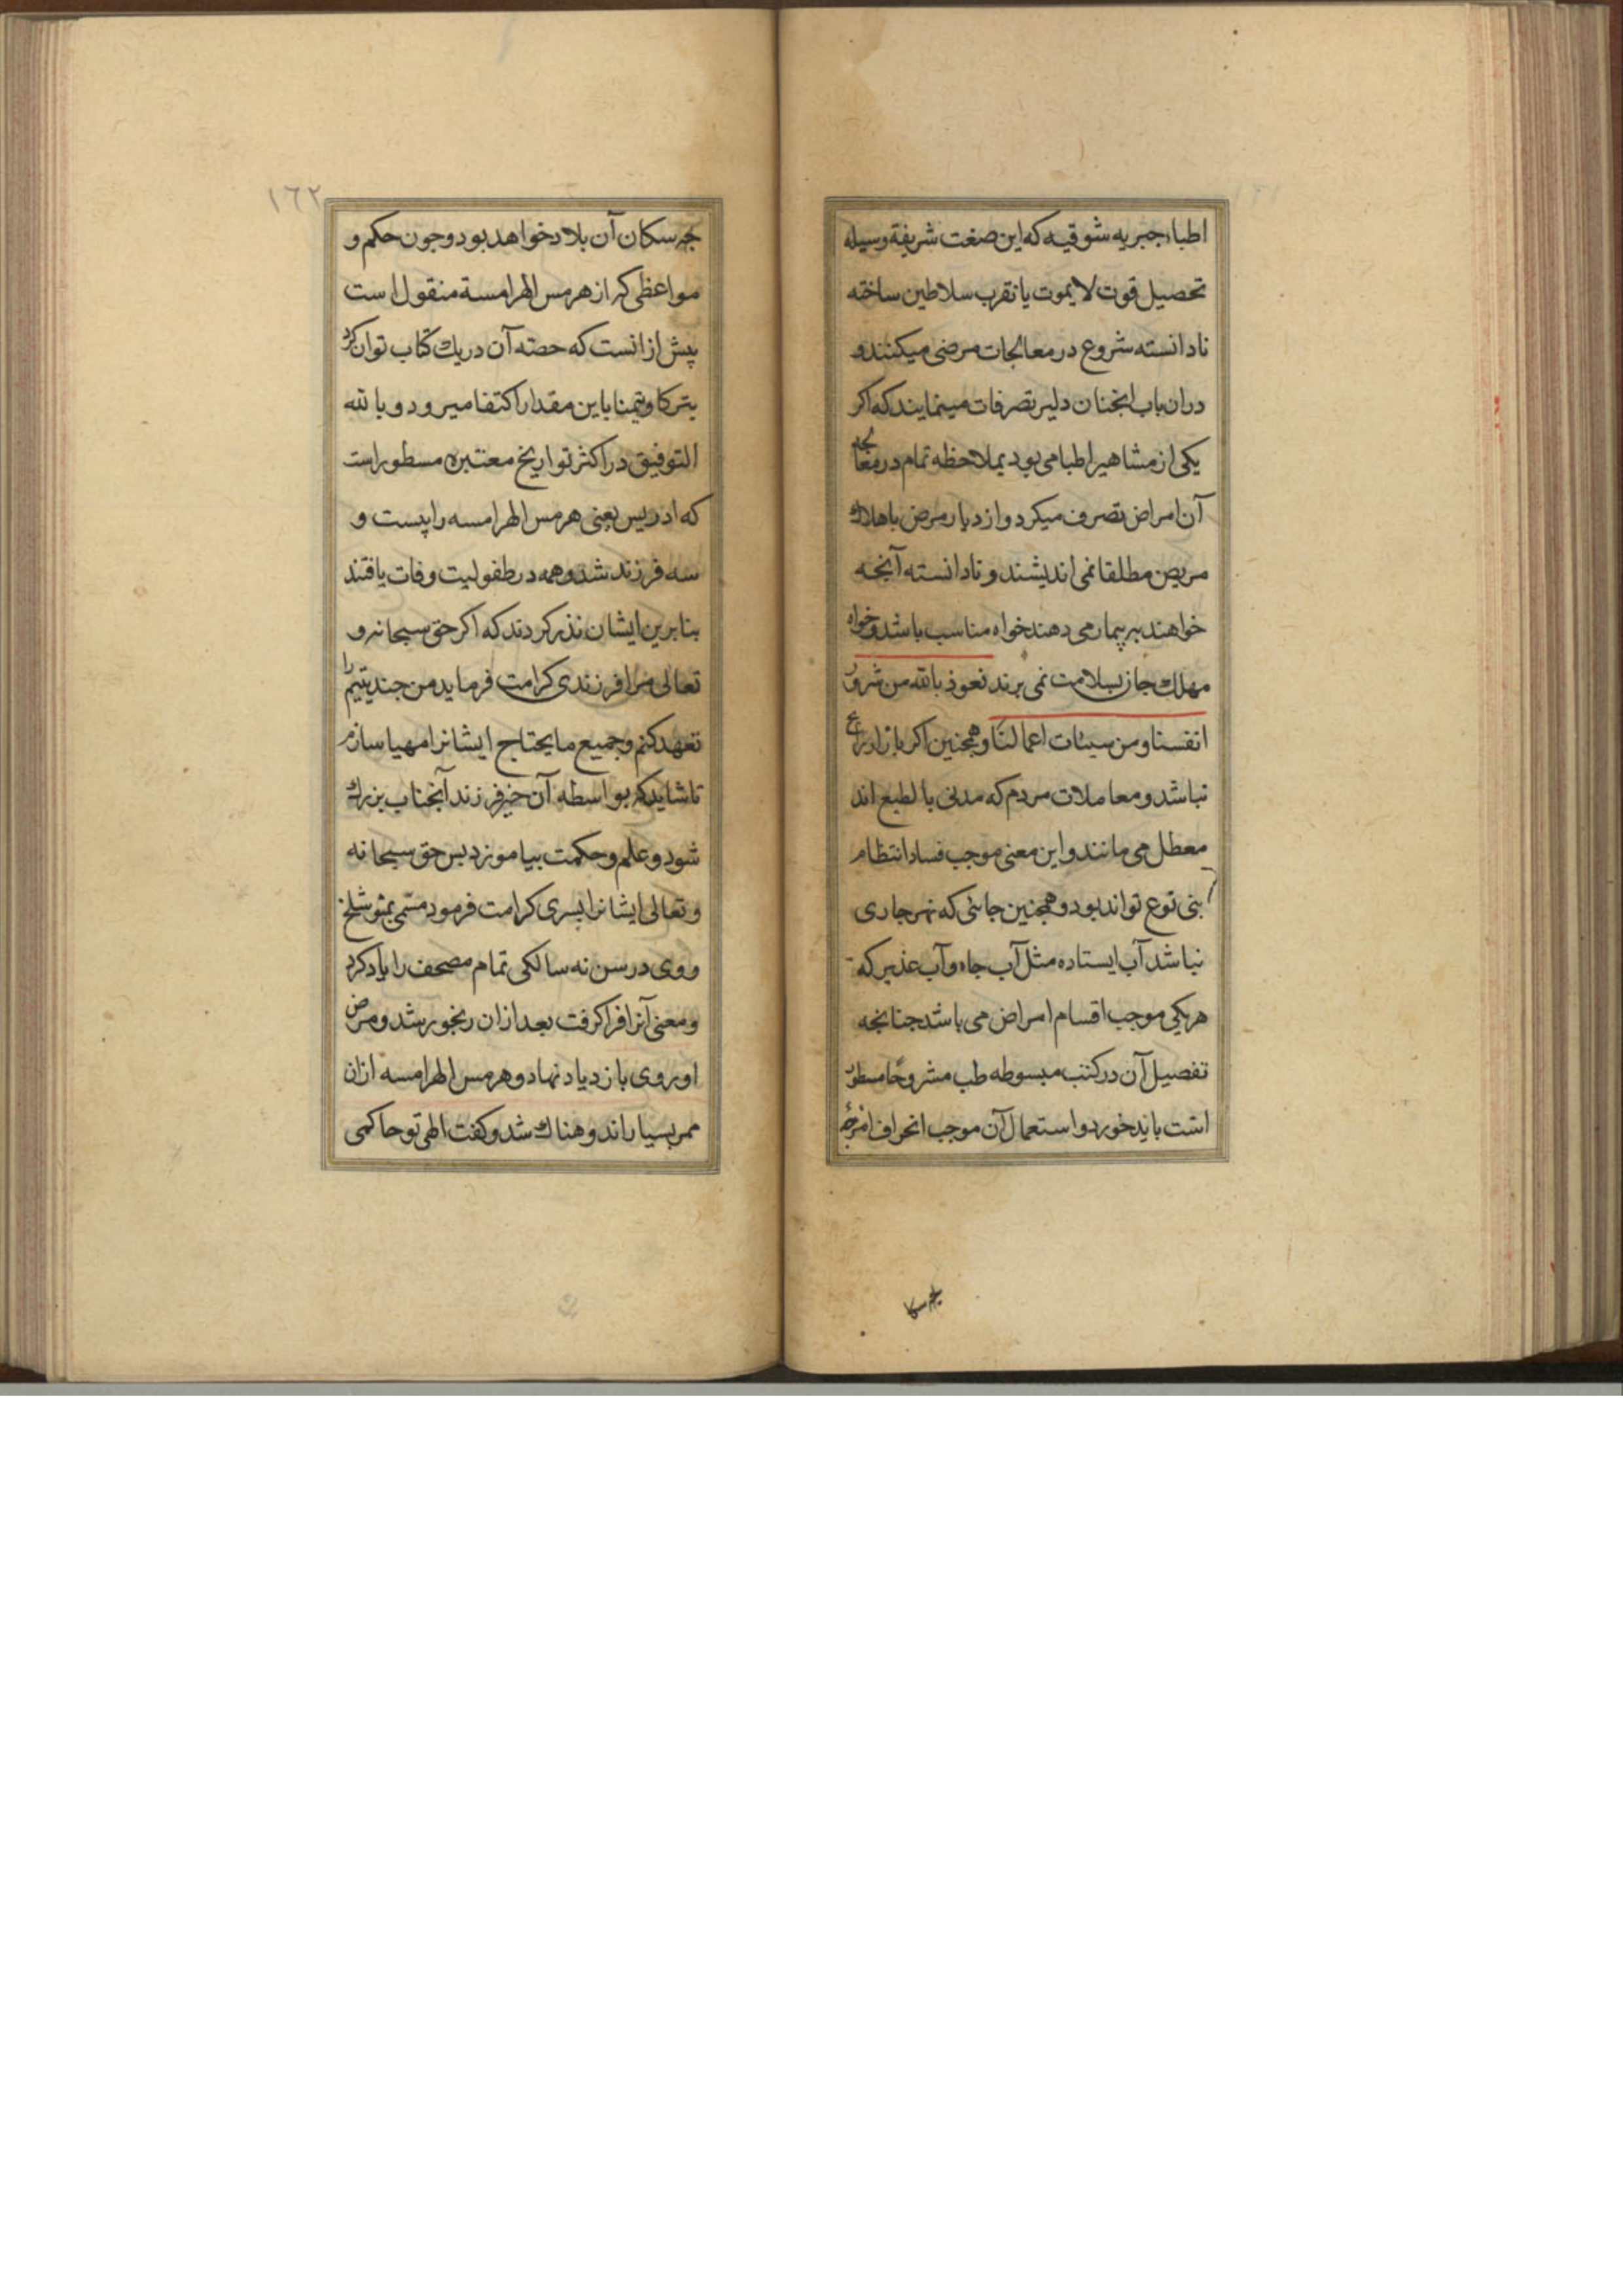 اطباء جبریه شوقیه که این صنعت شریفة وسیله
تحصیل قوت لایموت یا تقرب سلاطین ساخته
نادانسته شروع در معالجات مرضی میکنند و
دران باب انجنان دلیر تصرفات مینمایند که اکر
یکی از مشاهیر اطبا می بود بملاحظه تمام در معالجه
آن امراض تصرف میکرد و از دیار مرض یا هلاك
مریض مطلقا نمی اندیشند و نادانسته آنجه
خواهند ببیمار می دهند خواه مناسب باشد و خواه
مهلك جان بسلامت نمی برند نعوذ بالله من شرور
انفسنا و من سیئات اعمالنا و همجنین اکر بازار
نباشد و معاملات مردم که مدنی بالطبع اند
معطل می مانند و این معنی موجب فساد انتظام
بنی نوع تواند بود و همجنین جائی که نهر جاری
نباشد آب ایستاده مثل آب جاه و آب غدیر که
هر یکی موجب اقسام امراض می باشد جنانجه
تفصیل آن در کتب مبسوطه طب مشروحا مسطور
است باید خورد و استعمال آن موجب انحراف امزجه
جه سکا
١٦٢
جه سکان آن بلاد خواهد بود و جون حکم و
مواعظی که از هرمس الهرامسة منقول است
پیش از انست که حصته آن در یك کتاب توان کرد
بترکا و تیمنا باین مقدار اکتفا میرود و بالله
التوفیق در اکثر تواریخ معتبره مسطور است
که ادریس یعنی هرمس الهرامسه را پیست و
سه فرزند شد و همه در طفولیت وفات یافتند
بنابرین ایشان نذر کردند که اکر حق سبحانه و
تعالی مرا فرزندی کرامت فرماید من جند یتیم را
تعهد کنم و جمیع مایحتاج ایشانرا مهیا سازم
تا شاید که بواسطه آن خیر فرزند آنجناب بزرك
شود و علم و حکمت بیاموزد پس حق سبحانه
و تعالی ایشانرا پسری کرامت فرمود مسمی بمتوشلخ
و وی در سن نه سالکی تمام مصحف را یاد کرد
و معنی آنرا فرا کرفت بعد ازان رنجور شد و مرض
او روی بازدیاد نهاد و هرمس الهرامسه ازان
ممر بسیار اندوهناك شد و کفت الهی تو حاکمی